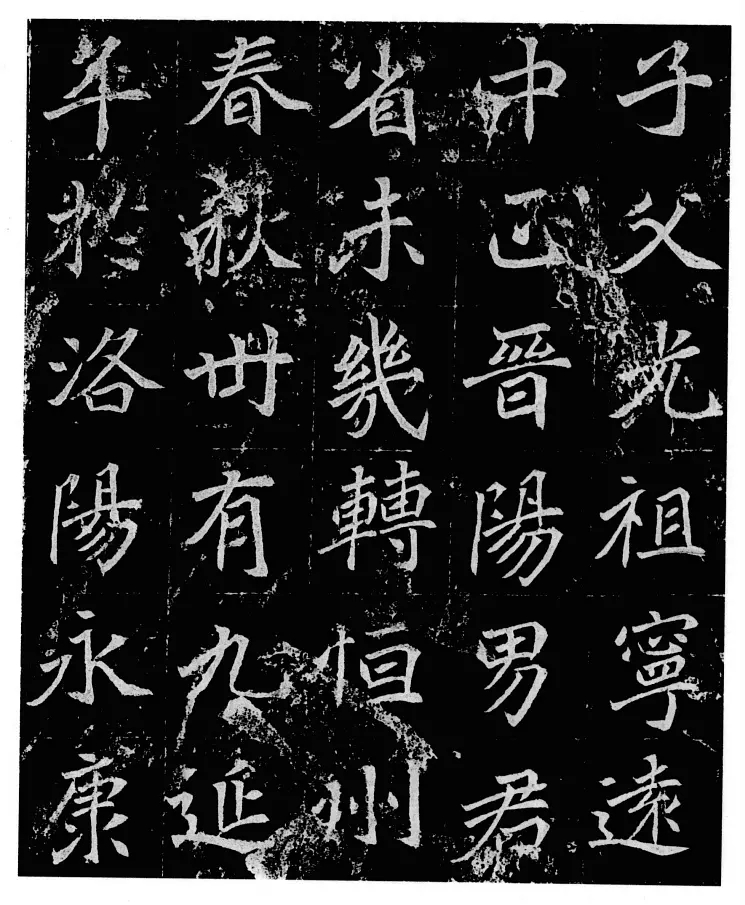 子父光祖寧遠
中正晉陽男君
省未幾轉恒州
春秋卌有九延
年於洛陽永康